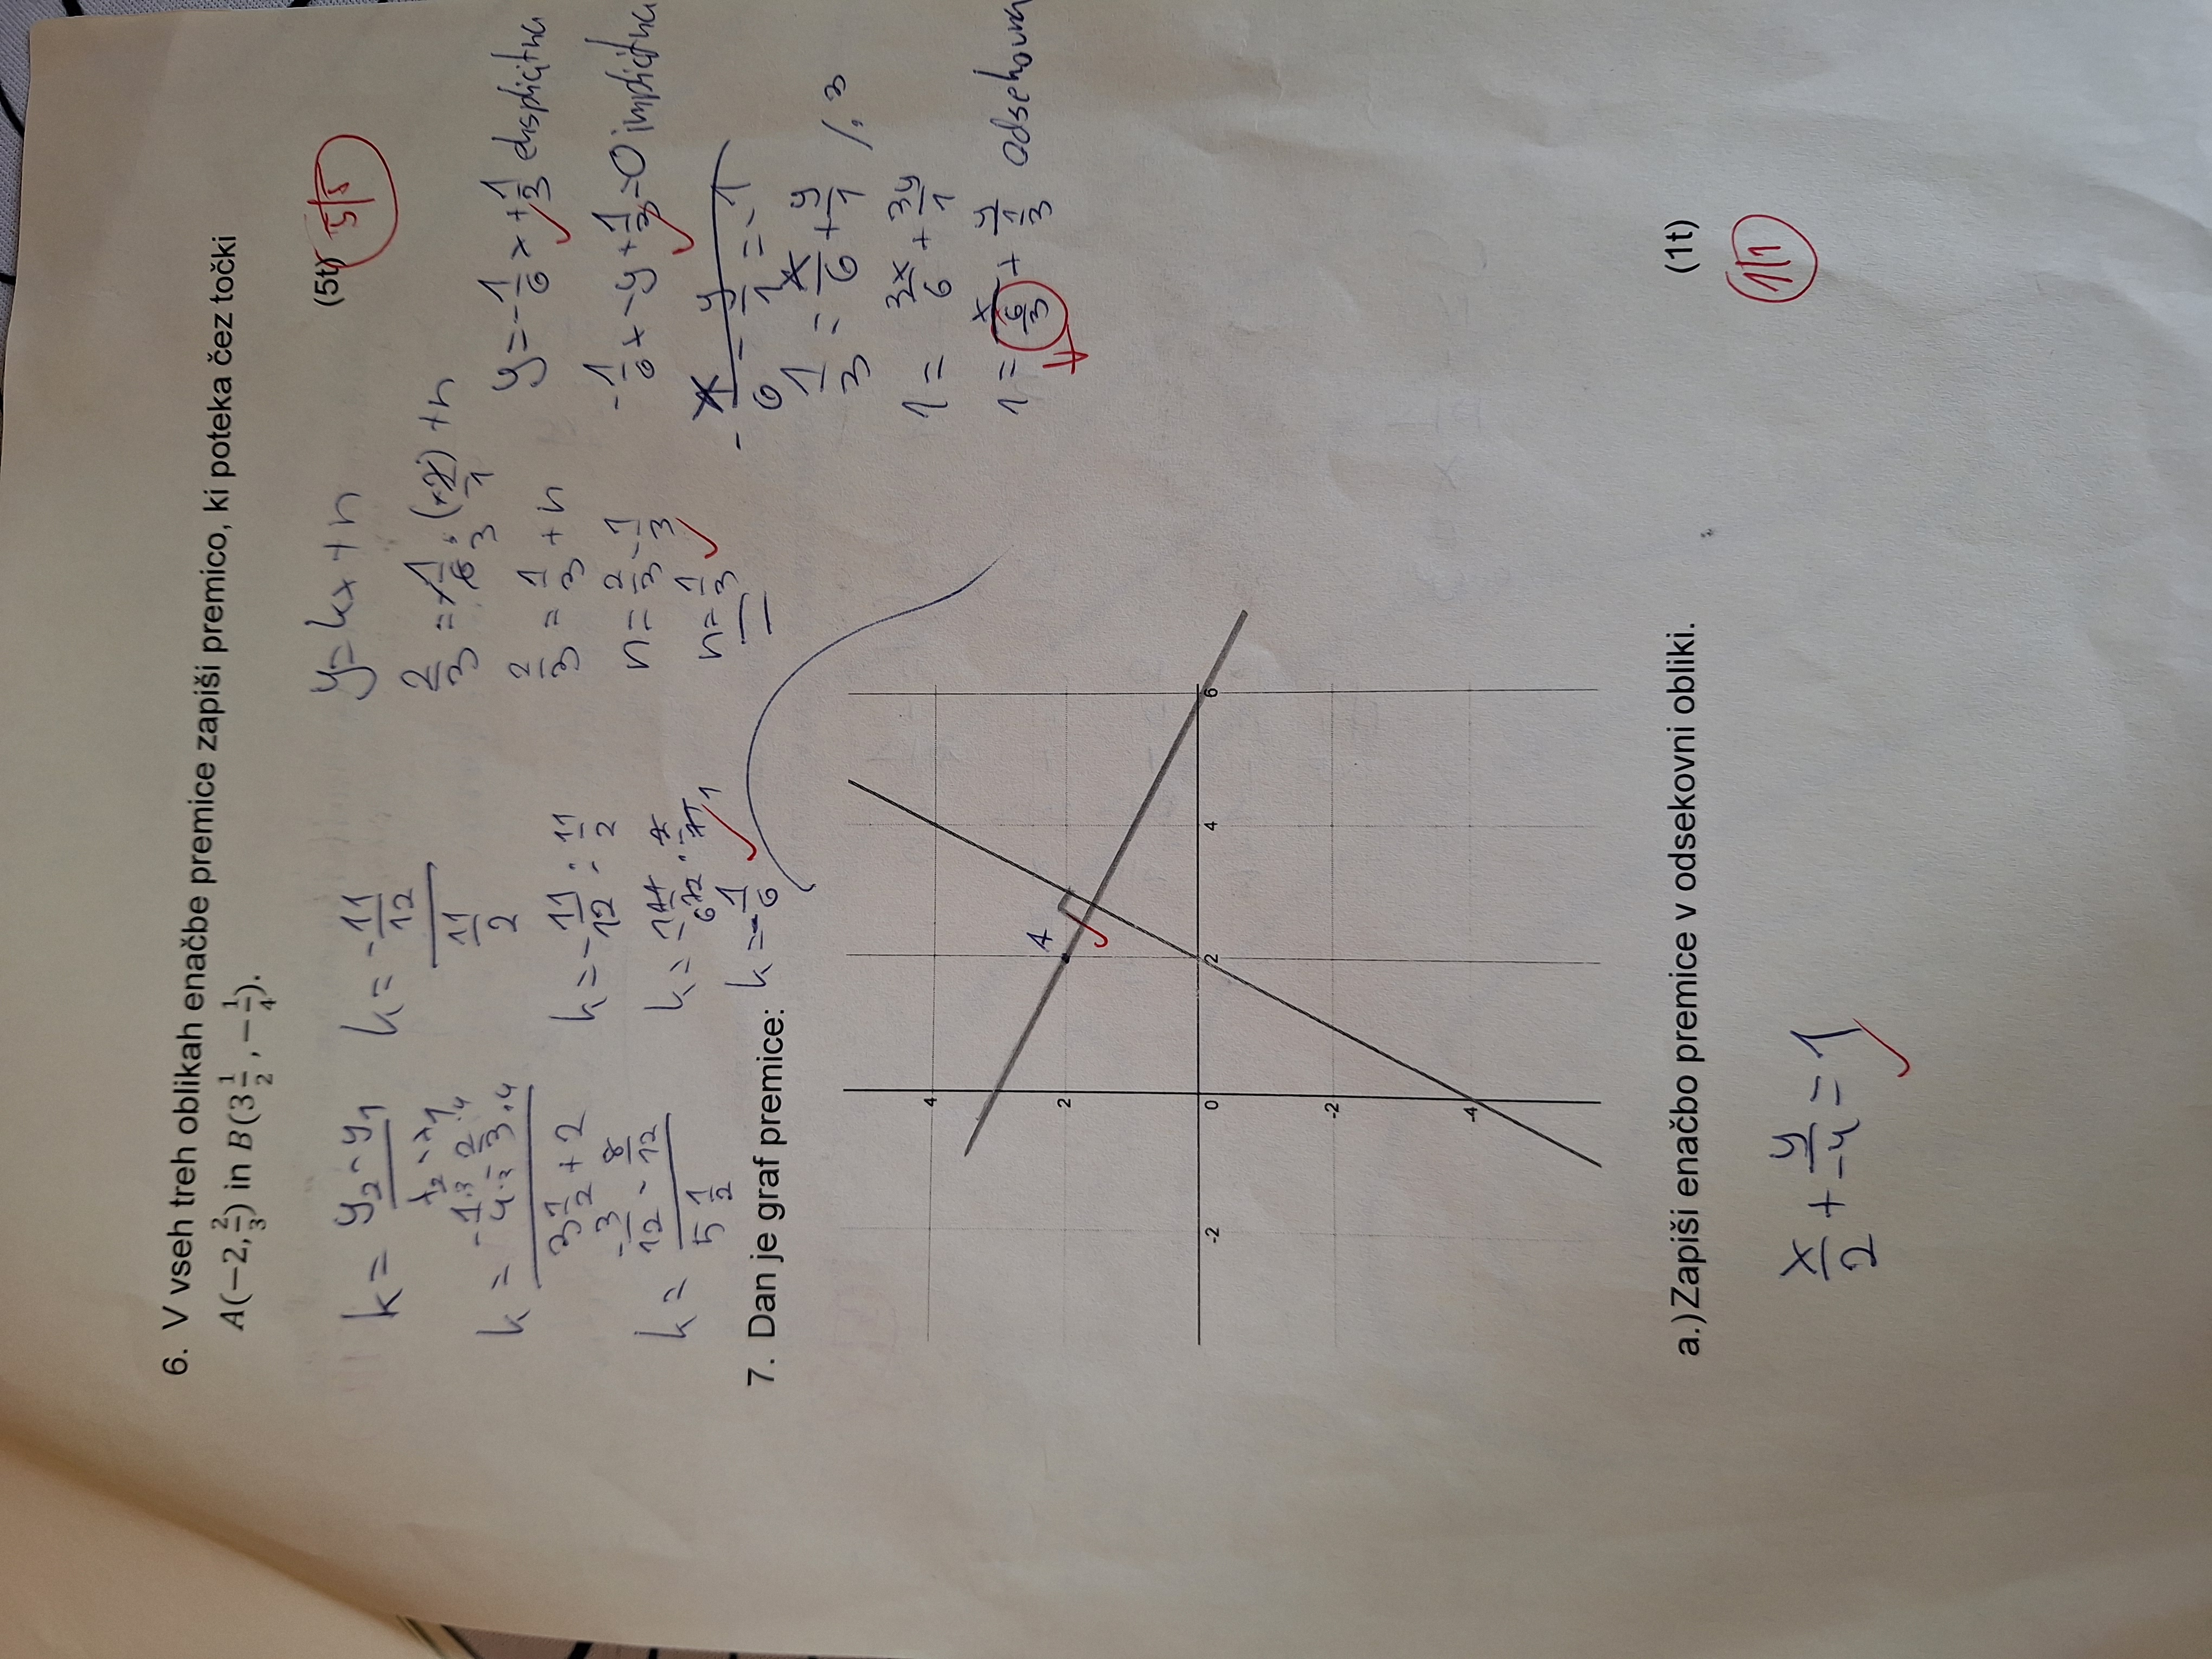 6. V vseh treh oblikah enačbe premice zapiši premico, ki poteka čez točki
A(−2, 2/3) in B(3 1/2 , −1/4).
(5t) 5/5
k = (y₂ - y₁)/(x₂ - x₁)
k = (-1·3/4·3 - 2·4/3·4)/(3 1/2 + 2)
k = (-3/12 - 8/12)/(5 1/2)
k = (-11/12)/(11/2)
k = -11/12 : 11/2
k = -11/12 · 2/11
k = -1/6
y = kx + n
2/3 = -1/6 · (-2)/1 + n
2/3 = 1/3 + n
n = 2/3 - 1/3
n = 1/3
y = -1/6 x + 1/3 eksplicitna
-1/6 x - y + 1/3 = 0 implicitna
- x/6 - y/1 = -1
1/3 = x/6 + y/1 /·3
1 = 3x/6 + 3y/1
1 = x/(6/3) + y/(1/3) odsekovna
7. Dan je graf premice:
4
A
2
-2 0 2 4 6
-2
-4
a.) Zapiši enačbo premice v odsekovni obliki. (1t)
1/1
x/2 + y/-4 = 1